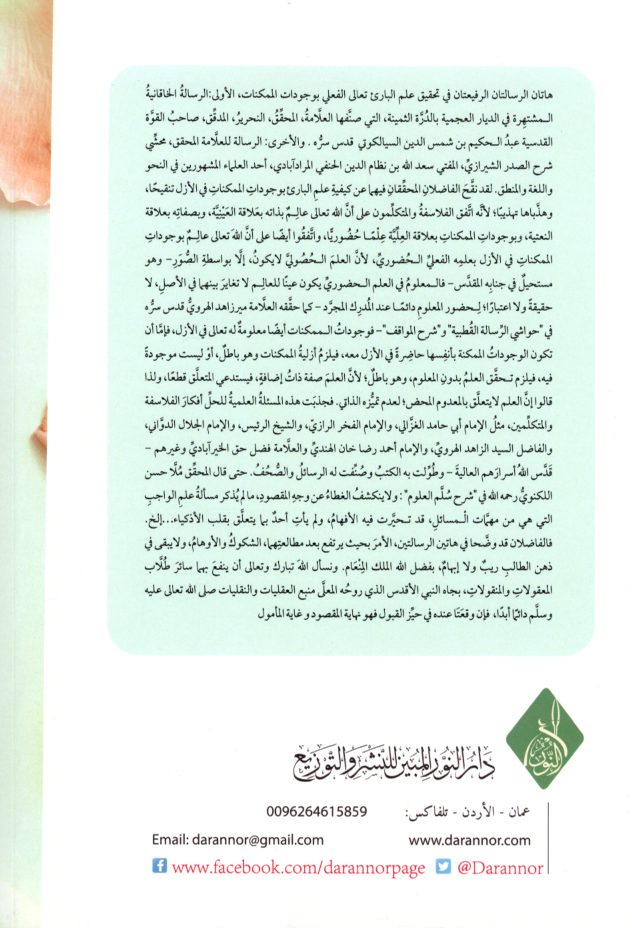 هاتان الرسالتان الرفيعتان في تحقيق علم البارئ تعالى الفعلي بوجودات الممكنات، الأولى:الرسالةُ الخاقانيةُ
المشتهِرة في الديار العجمية بالدُّرَّة الثمينة، التي صنَّفها العلَّامةُ، المحقِّقُ، النحريرُ، المدقِّق، صاحبُ القوَّة
القدسية عبدُ الحكيم بن شمس الدين السيالكوتي قدس سرُّه . والأخرى: الرسالة للعلَّامة المحقق، محشِّي
شرح الصدر الشيرازيِّ، المفتي سعد الله بن نظام الدين الحنفي المرادآبادي، أحد العلماء المشهورين في النحو
واللغة والمنطق. لقد نقَّحَ الفاضلانِ المحقِّقانِ فيهما عن كيفيةِ علمِ البارئ بوجوداتِ الممكناتِ في الأزل تنقيحًا،
وهذَّباها تهذيبًا؛ لأنَّه اتَّفق الفلاسفةُ والمتكلِّمون على أنَّ الله تعالى عالِـمٌ بذاته بعَلاقة العَيْنِيَّة، وبصفاتِه بعلاقة
النعتية، وبوجوداتِ الممكناتِ بعلاقة العِلِّيَّة عِلْمًا حُضُوريًّا، واتَّفقُوا أيضًا على أنَّ اللهَ تعالى عالِـمٌ بوجوداتِ
الممكناتِ في الأزل بعلمِه الفعليِّ الحُضوريِّ، لأنَّ العلمَ الـحُصُوليَّ لايكونُ، إلَّا بواسطةِ الصُّوَرِ- وهو
مستحيلٌ في جنابِه المقدَّس- فالـمعلومُ في العلم الحضوريِّ يكون عينًا للعالِـم، لا تغايرَ بينهما في الأصلِ، لا
حقيقةً ولا اعتبارًا؛ لِـحضور المعلومِ دائمًا عند الـمُدرِك المجرَّد - كما حقَّقه العلَّامة ميرزاهد الهرويُّ قدس سرُّه
في "حواشي الرِّسالة القُطبية" و"شرح المواقف"- فوجوداتُ الـممكنات أيضًا معلومةٌ له تعالى في الأزل، فإمَّا أن
تكون الوجوداتُ الممكنة بأنفسِها حاضِرةً في الأزل معه، فيلزمُ أزليةُ الممكنات وهو باطلٌ، أوْ ليست موجودةً
فيه، فيلزم تـحقَّق العلمُ بدونِ المعلومِ، وهو باطل؛ لأنَّ العلمَ صفة ذاتُ إضافةٍ، فيستدعي المتعلَّق قطعًا، ولذا
قالوا إنَّ العلم لايتعلَّق بالمعدوم المحض؛ لعدم تميُّزه الذاتي. فجذبَت هذه المسئلةُ العلميةُ للحلِّ أفكارَ الفلاسفة
والمتكلمين، مثلُ الإمام أبي حامد الغزَّالي، والإمام الفخر الرازيِّ، والشيخ الرئيس، والإمام الجلال الدوَّاني،
والفاضل السيد الزاهد الهرويِّ، والإمام أحمد رضا خان الهنديِّ والعلَّامة فضل حق الخيرآباديِّ وغيرهم -
قدَّس اللهُ أسرارَهم العاليةَ - وطُوِّلت به الكتبُ وصُنِّفت له الرسائلُ والصُّحُفُ. حتى قال المحقِّق مُلَّا حسن
اللكنويُّ رحمه الله في "شرح سُلَّم العلوم": ولاينكشفُ الغطاءُ عن وجهِ المقصودِ، مالم يُذكر مسألةُ علمِ الواجبِ
التي هي من مهمَّات الـمسائل، قد تـحيَّرت فيه الأفهامُ، ولم يأتِ أحدٌ بما يتعلَّق بقلب الأذكياء...إلخ.
فالفاضلان قد وضَّحا في هاتين الرسالتين، الأمرَ بحيث يرتفع بعد مطالعتِهما، الشكوكُ والأوهامُ، ولايبقى في
ذهن الطالبِ ريبٌ ولا إبهامٌ، بفضل الله الملك المِنْعَام. ونسألُ اللهَ تبارك وتعالى أن ينفعَ بهما سائرَ طُلَّاب
المعقولاتِ والمنقولاتِ، بجاه النبي الأقدس الذي روحُه المعلَّى منبع العقليات والنقليات صلى الله تعالى عليه
وسلَّم دائمًا أبدًا، فإن وقعَتَا عنده في حيِّز القبول فهو نهاية المقصود و غاية المأمول
النور
دار النور المبين للنشر والتوزيع
عمان - الأردن - تلفاكس: 0096264615859
Email: darannor@gmail.com www.darannor.com
www.facebook.com/darannorpage @Darannor